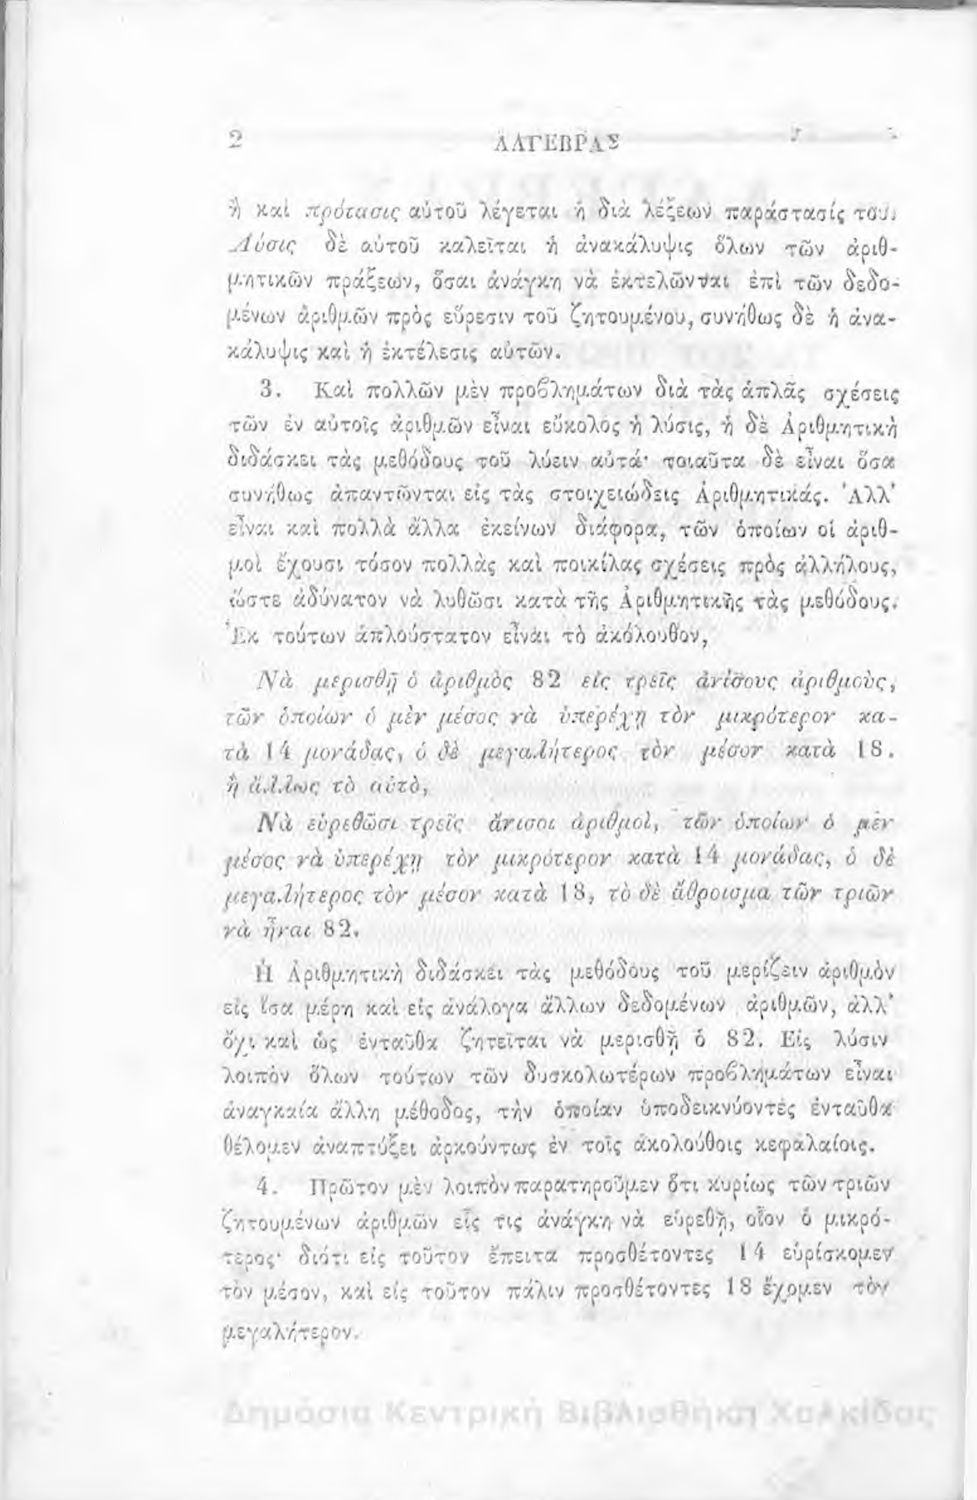 2 ΑΛΓΕΒΡΑΣ
ἢ καὶ πρότασις αὐτοῦ λέγεται ἡ διὰ λέξεων παράστασίς του.
Λύσις δὲ αὐτοῦ καλεῖται ἡ ἀνακάλυψις ὅλων τῶν ἀριθ-
μητικῶν πράξεων, ὅσαι ἀνάγκη νὰ ἐκτελῶνται ἐπὶ τῶν δεδο-
μένων ἀριθμῶν πρὸς εὕρεσιν τοῦ ζητουμένου, συνήθως δὲ ἡ ἀνα-
κάλυψις καὶ ἡ ἐκτέλεσις αὐτῶν.
3. Καὶ πολλῶν μὲν προβλημάτων διὰ τὰς ἁπλᾶς σχέσεις
τῶν ἐν αὐτοῖς ἀριθμῶν εἶναι εὔκολος ἡ λύσις, ἡ δὲ Ἀριθμητικὴ
διδάσκει τὰς μεθόδους τοῦ λύειν αὐτά· τοιαῦτα δὲ εἶναι ὅσα
συνήθως ἀπαντῶνται εἰς τὰς στοιχειώδεις Ἀριθμητικάς. Ἀλλ'
εἶναι καὶ πολλὰ ἄλλα ἐκείνων διάφορα, τῶν ὁποίων οἱ ἀριθ-
μοὶ ἔχουσι τόσον πολλὰς καὶ ποικίλας σχέσεις πρὸς ἀλλήλους,
ὥστε ἀδύνατον νὰ λυθῶσι κατὰ τῆς Ἀριθμητικῆς τὰς μεθόδους.
Ἐκ τούτων ἁπλούστατον εἶναι τὸ ἀκόλουθον,
Νὰ μερισθῇ ὁ ἀριθμὸς 82 εἰς τρεῖς ἀνίσους ἀριθμοὺς,
τῶν ὁποίων ὁ μὲν μέσος νὰ ὑπερέχῃ τὸν μικρότερον κα-
τὰ 14 μονάδας, ὁ δὲ μεγαλήτερος τὸν μέσον κατὰ 18.
ἢ ἄλλως τὸ αὐτὸ,
Νὰ εὑρεθῶσι τρεῖς ἄνισοι ἀριθμοὶ, τῶν ὁποίων ὁ μὲν
μέσος νὰ ὑπερέχῃ τὸν μικρότερον κατὰ 14 μονάδας, ὁ δὲ
μεγαλήτερος τὸν μέσον κατὰ 18, τὸ δὲ ἄθροισμα τῶν τριῶν
νὰ ἦναι 82.
Ἡ Ἀριθμητικὴ διδάσκει τὰς μεθόδους τοῦ μερίζειν ἀριθμὸν
εἰς ἴσα μέρη καὶ εἰς ἀνάλογα ἄλλων δεδομένων ἀριθμῶν, ἀλλ'
ὄχι καὶ ὡς ἐνταῦθα ζητεῖται νὰ μερισθῇ ὁ 82. Εἰς λύσιν
λοιπὸν ὅλων τούτων τῶν δυσκολωτέρων προβλημάτων εἶναι
ἀναγκαία ἄλλη μέθοδος, τὴν ὁποίαν ὑποδεικνύοντες ἐνταῦθα
θέλομεν ἀναπτύξει ἀρκούντως ἐν τοῖς ἀκολούθοις κεφαλαίοις.
4. Πρῶτον μὲν λοιπὸν παρατηροῦμεν ὅτι κυρίως τῶν τριῶν
ζητουμένων ἀριθμῶν εἷς τις ἀνάγκη νὰ εὑρεθῇ, οἷον ὁ μικρό-
τερος· διότι εἰς τοῦτον ἔπειτα προσθέτοντες 14 εὑρίσκομεν
τὸν μέσον, καὶ εἰς τοῦτον πάλιν προσθέτοντες 18 ἔχομεν τὸν
μεγαλήτερον.
Δημόσια Κεντρική Βιβλιοθήκη Χαλκίδας